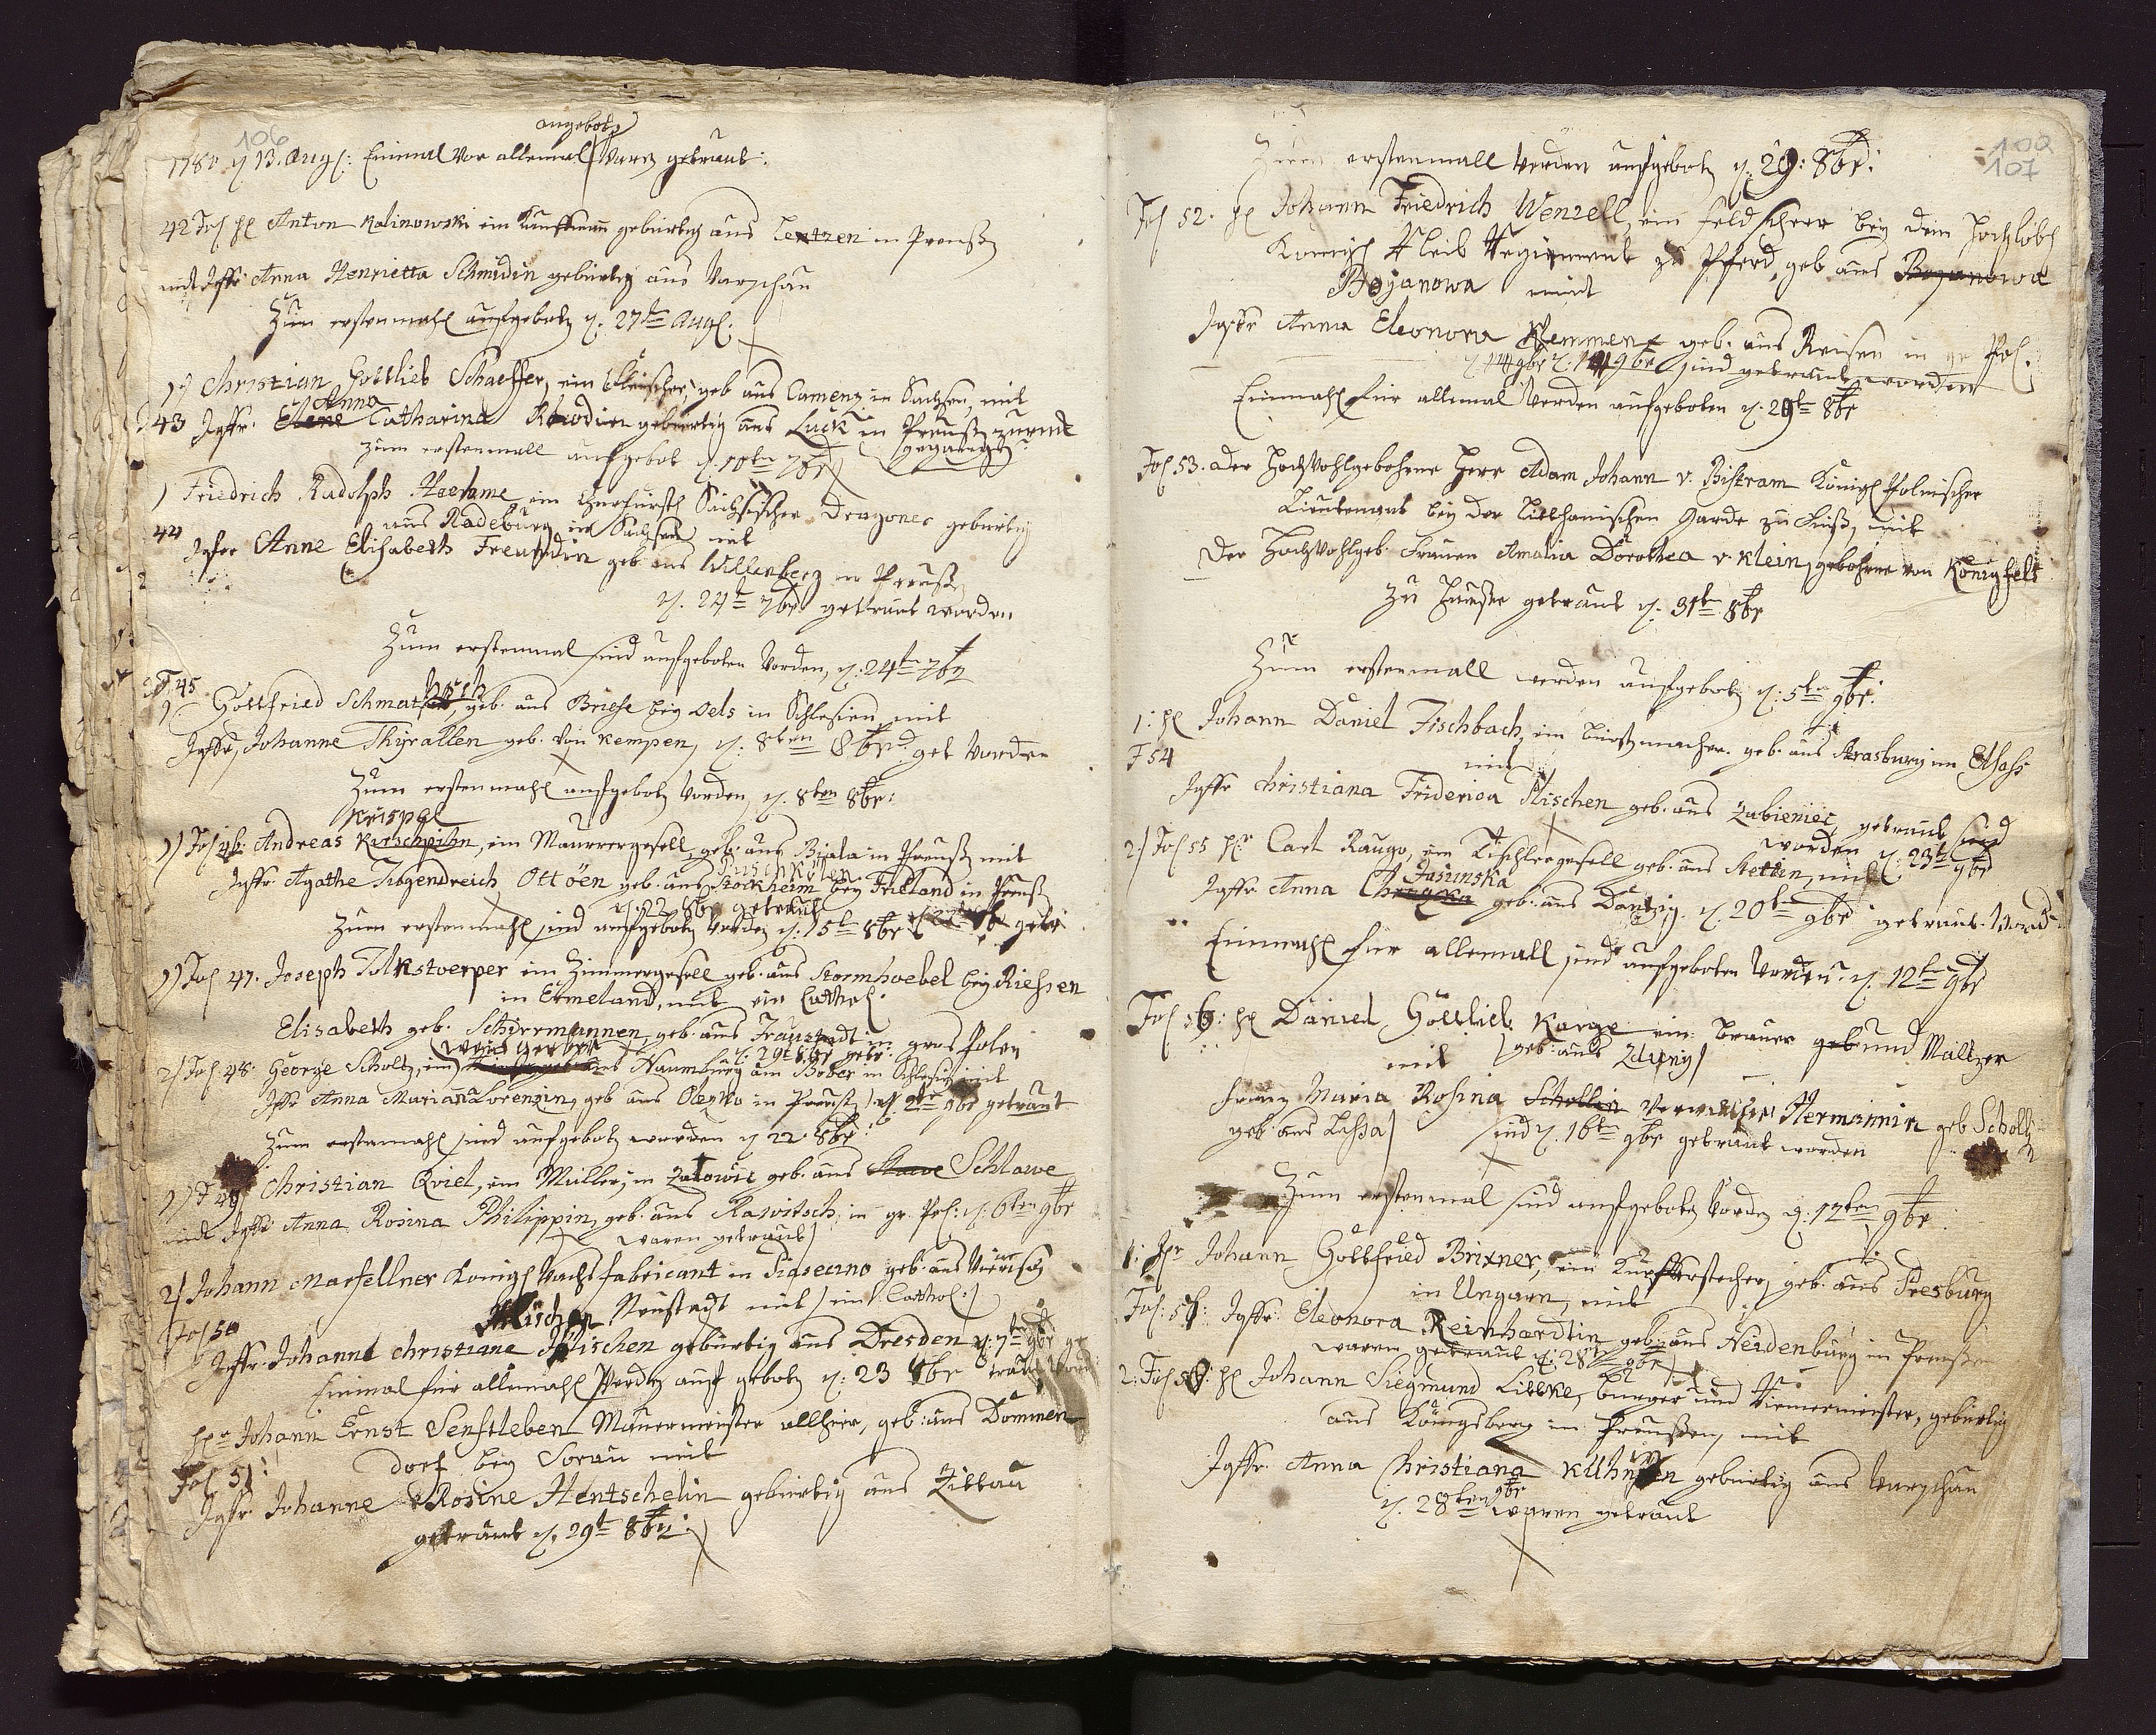 106
angebotz
1780 d 13. Aug: Einmal vor allemal waren getraut:
42 Fol H Anton Kalinowski ein Kauffmann gebürtig aus in Preuß
mit Jgfr: Anna Henrietta Schmidin gebürtig aus Warschau
Zum erstenmahl aufgebotz d. 27ten Aug.
1) Christian Gottlieb Schaeffer, ein Fleischer, geb aus Camenz in Sachsen, mit
Anna
43 Jgfr. Catharina gebürtig aus Luck in Preußen
zum erstenmall aufgebot d. 10ten 7br
) Friedrich Rudolph ein Churfürstl Sächsischer Dragoner gebürtig
44 aus Radeburg in Sachsen mit
Jgfer Anne Elisabeth Freundin geb aus Willenberg in Preuß,
d. 24t 7br getraut worden
Zum erstenmal sind aufgeboten worden, d. 24ten 7br
F 45
Gottfried geb. aus Briese bey Oels in Schlesien mit
Jgfr, Johanne Thyrallen geb. von Kempen, d. 8ten 8br. get worden
Zum erstenmahl aufgebotz worden, d. 8ten 8br:
Krispal
1) Fol 46. Andreas Kirschpihn, ein Mauerergesell, geb. aus Biala in Preuß mit
Puschkölen
Jgfr. Agathe Tugendreich Ottöen geb. aus Stockheim bey Fridland in Preuß
d. 22 8br getraut
Zum erstenmahl sind aufgebotz worden d. 15t 8br
1) Fol 47. Joseph Tolkstverper ein Zimmergesell geb. aus Stormhoebel bey Riehsen
in Ermeland, mit ein Cathol.
Elisabeth geb. Schirrmannen, geb. aus Fraustadt in gros Polen
d. 29t 8br getr.
2) Fol 48. George Scholtz, ein aus Naumburg am Bober in Schlesien mit
Jgfr Anna Mariana Lorenzin, geb aus Olezko in Preuß d. 2ten 9br getraut
Zum erstenmahl sind aufgebotz worden d 22. 8br:
1) F 49 Christian Qviel, ein Müller, in Zatowic geb. aus Schlawe
mit Jgfr: Anna Rosina Philippin, geb. aus Rawitsch, in gr. Pol: d: 6ten 9br
waren getraut)
2) Johann Marfellner Königl Wachs fabricant in geb. aus
Neustadt mit ein Cathol:
Fol 50
Jgfr. Johanne christiane gebürtig aus Dresden d. 7ten 9br ge
traut word
Einmal für allemahl werden auf gebotz d. 23 8br
Hr Johann Ernst Senftleben Mauermeister allhier, geb: aus Dommen
dorf bey Sorau mit
Fol 51:
Jgfr. Johanne Rosine Hentschelin gebürtig aus Zittau
getraut d. 29t 8br.
100
107
Zum erstenmall werden aufgebotz d. 29: 8br:
Fol 52. H Johann Friedrich Wenzell, ein feldscheer bey dem Hochlöbl
Königl Leib Regiment zu Pferd, geb aus Bojanowa
Bojanowa mit
Jgfr Anna Eleonora geb. aus Reisen in gr Pol.
sind getraut worden
Einmahl für allemal werden aufgeboten d. 29t 8br
Fol 53. der Hochwohlgebohrne Herr Adam Johann v. Bistram Königl Polnischer
Lieutenant bey der Litthauischen Garde zu Fuß, mit
Der Hochwohlgeb. Frauen Amalia Dorothea v. Klein, gebohrne von Königfels
zu Hause getraut d. 31t 8br
Zum erstenmall werden aufgebotz d: 5ten 9br:
1: H Johann Daniel Fischbach, ein geb. aus Strasburg im Elsass
F 54 mit
Jgfr Christiana Friderica geb. aus Zabieniec, getraut sind
worden d. 23t 9br
2) Fol 55 Hr Carl Raugo, ein Tischlergesell geb. aus Stettin, mit
Jasinska
Jgfr. Anna geb. aus Dantzig. d. 20ten 9br getraut. word
Einmahl für allemall sind aufgeboten worden d. 12t 9br
Fol 56: H Daniel Gottlieb Karge ein Brauer und Mältzer
mit (geb: aus Zduny)
Frau Maria Rosina Schollin Hermannin geb Scholtz
geb aus Lissa) sind d. 16ten 9br getraut worden
Zum erstenmal sind aufgebotz worden d. 12ten 9br.
1: Hr Johann Gottfried Brixner, ein Kupfferstecher, geb. aus Presburg
in Ungarn, mit
Fol: 57: Jgfr. Eleonora Reinhardtin geb: aus Neidenburg in Preußen
waren getraut d. 28t 9br)
2. Fol 58: H Johann Siegmund Littke, bürger und Riemermeister, gebürtig
aus Königsberg in Preußen, mit
Jgfr. Anna Christiana gebürtig aus Warschau
d. 28ten 9br waren getraut